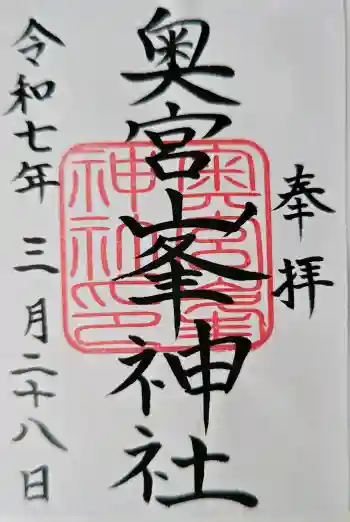 奉拝
奥宮峯神社
奥宮峯
神社印
令和七年三月二十八日